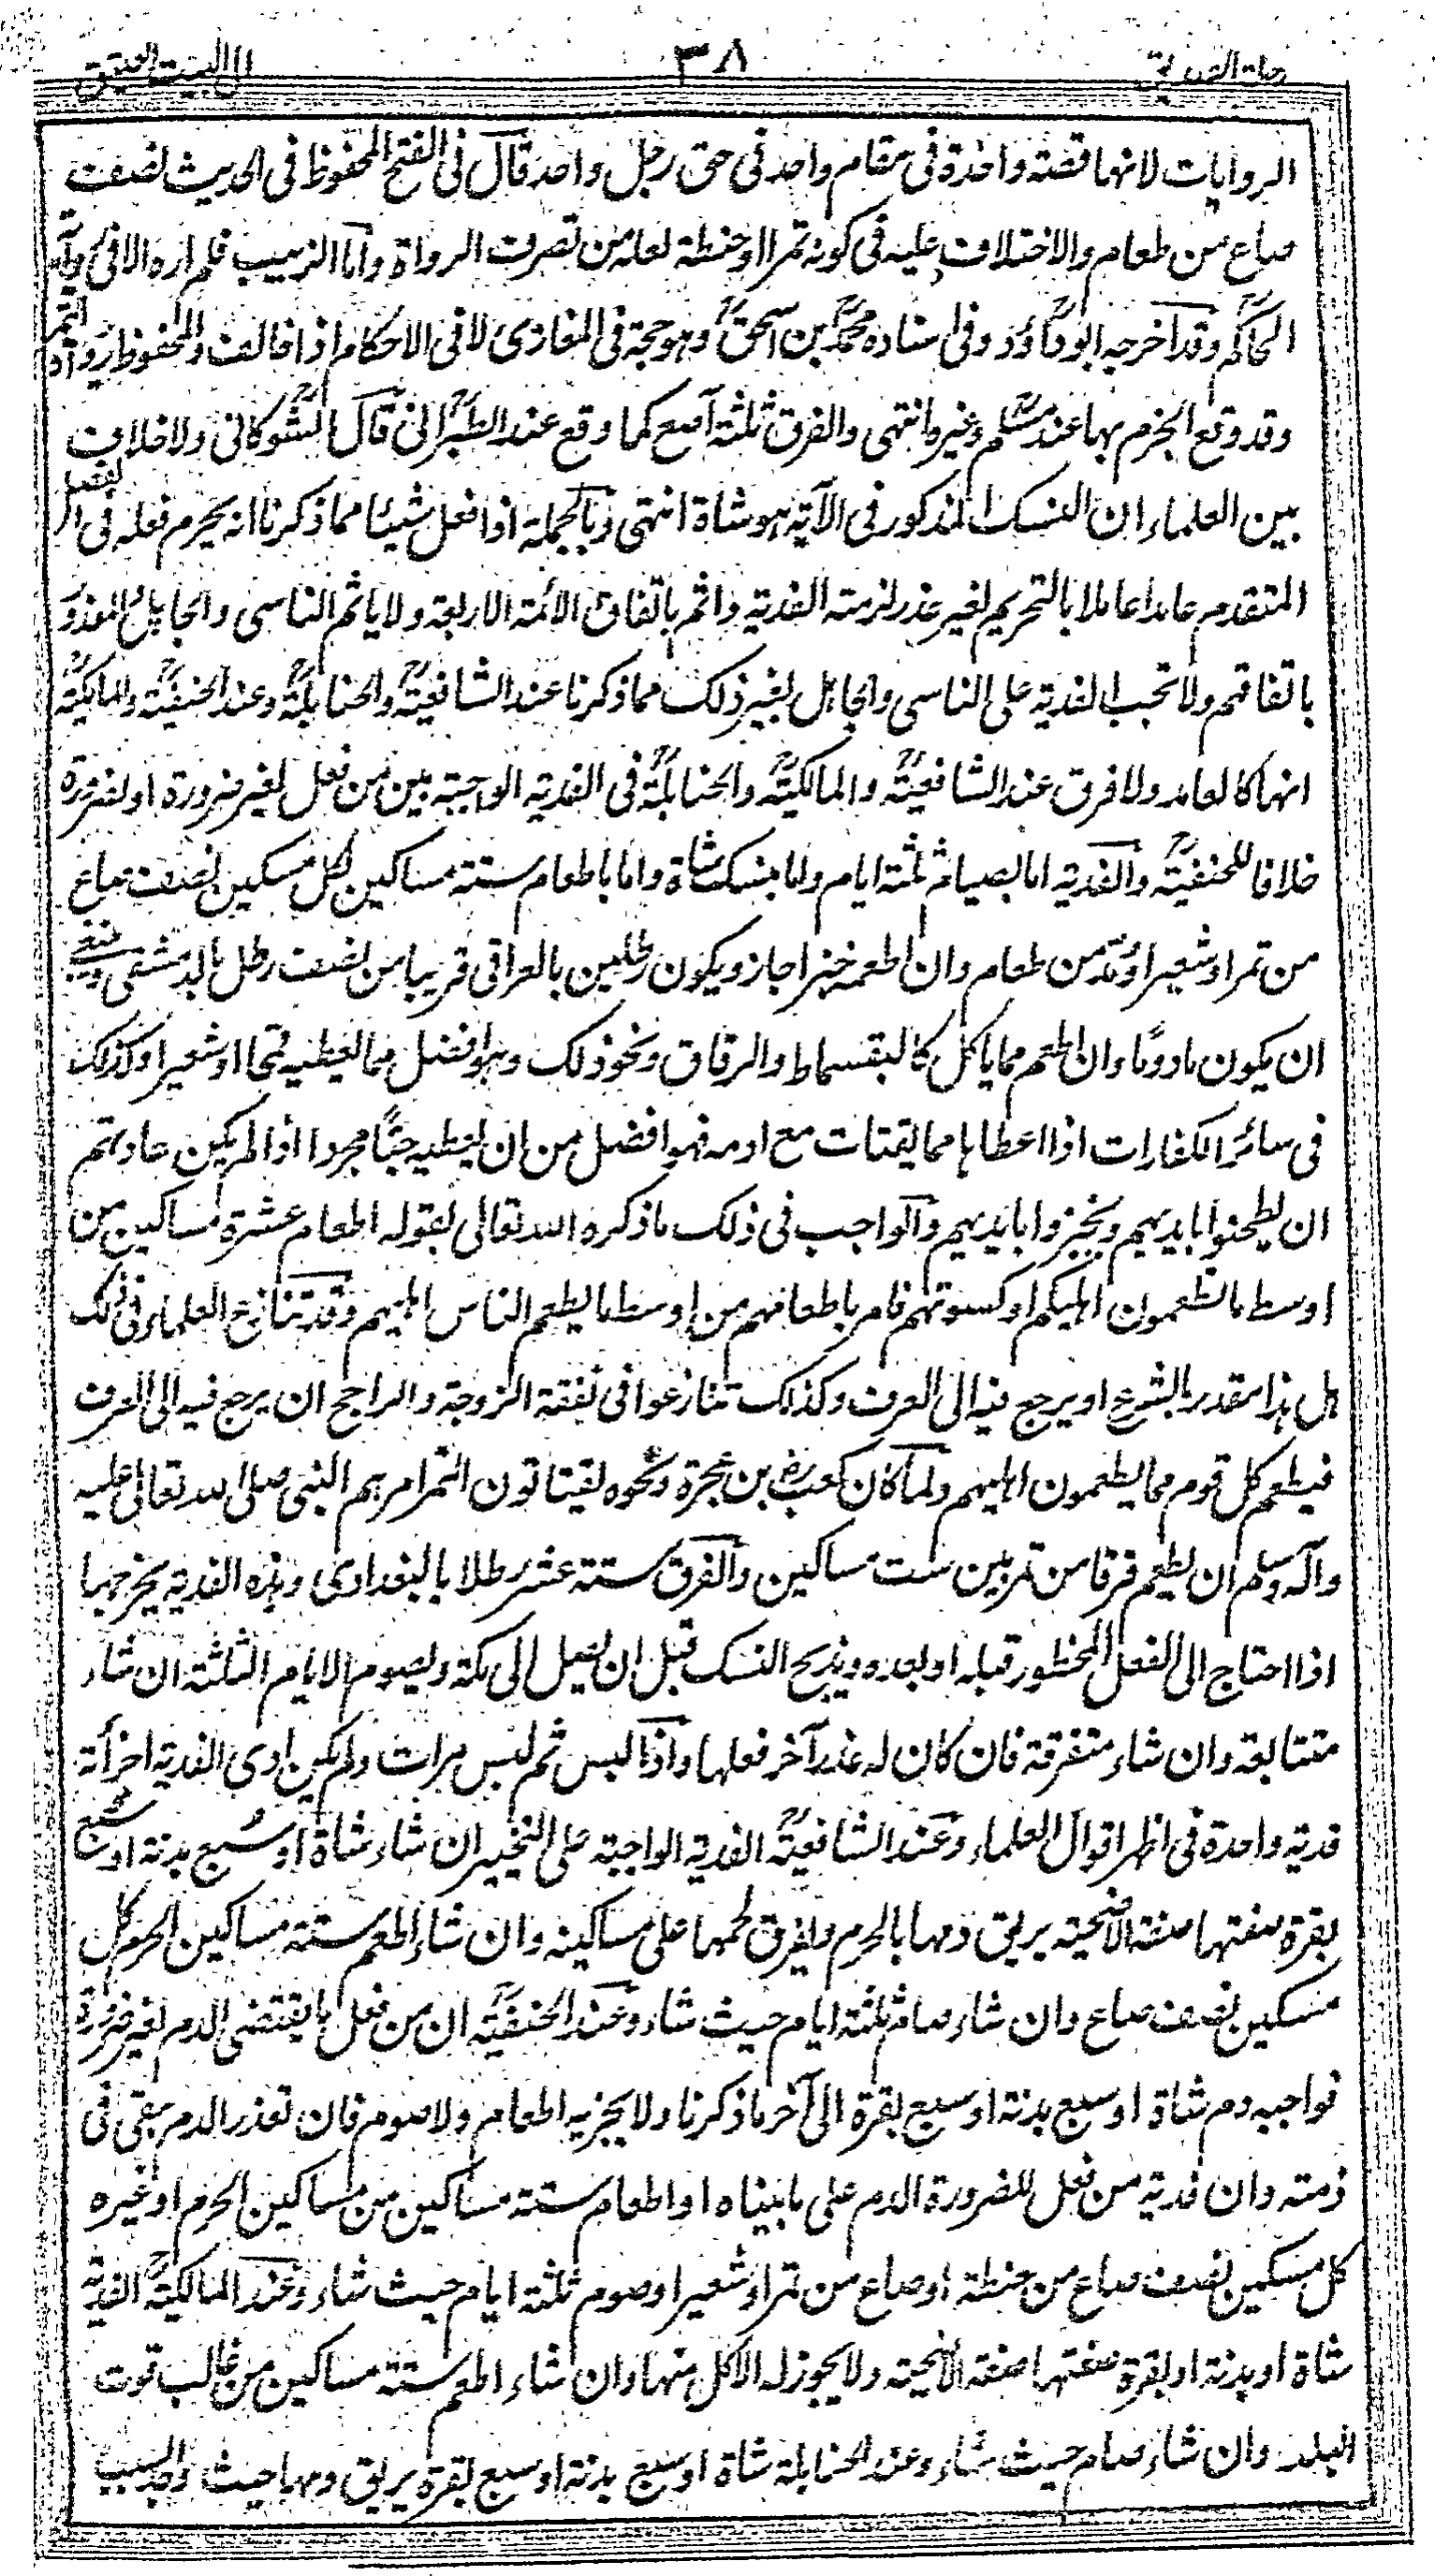 رحلة الصديق ٣٨ الى البيت العتيق
الروايات لانها قصة واحدة فى مقام واحد فى حق رجل واحد قال فى الفتح المحفوظ فى الحديث نصف
صاع من طعام والاختلاف عليه فى كونه تمرا او حنطة لعله من تصرف الرواة واما الزبيب فلم اره الا فى رواية
الحاكم وقد اخرجه ابو داؤد وفى اسناده محمد بن اسحق وهو حجة فى المغازى لا فى الاحكام اذا خالف والمحفوظ رواية التمر
وقد وقع الجزم بها عند مسلم وغيره انتهى والفرق ثلثة آصع كما وقع عند الطبرانى قال الشوكانى ولا خلاف
بين العلماء ان النسك المذكور فى الآية هو شاة انتهى وبالجملة اذا فعل شيئا مما ذكرنا انه يحرم فعله فى الفصل
المتقدم عامدا عالما بالتحريم لغير عذر لزمته الفدية واثم باتفاق الائمة الاربعة ولا ياثم الناسى والجاهل المعذور
باتفاقهم ولا تجب الفدية على الناسى والجاهل لغير ذلك مما ذكرنا عند الشافعية والحنابلة وعند الحنفية والمالكية
انهما كالعامد ولا فرق عند الشافعية والمالكية والحنابلة فى الفدية الواجبة بين من فعل لغير ضرورة او لضرورة
خلافا للحنفية والفدية اما بصيام ثلثة ايام واما بنسك شاة واما باطعام ستة مساكين لكل مسكين نصف صاع
من تمر او شعير او مد من طعام وان اطعمه خبزا جاز ويكون رطلين بالعراقى قريبا من نصف رطل بالدمشقى وينبغى
ان يكون مادوما وان اطعم مما ياكل كالبقسماط والرقاق ونحو ذلك وهو افضل مما يعطيه قمحا او شعيرا وكذلك
فى سائر الكفارات اذا اعطاها مما يقتات مع ادمه فهو افضل من ان يعطيه حبا مجردا اذا لم يكن عادتهم
ان يطحنوا بايديهم ويخبزوا بايديهم والواجب فى ذلك ما ذكره الله تعالى بقوله اطعام عشرة مساكين من
اوسط ما تطعمون اهليكم او كسوتهم فامر باطعامهم من اوسط ما يطعم الناس اهليهم وقد تنازع العلماء فى ذلك
هل هذا مقدر بالشرع او يرجع فيه الى العرف وكذلك تنازعوا فى نفقة الزوجة والراجح ان يرجع فيه الى العرف
فيطعم كل قوم مما يطعمون اهليهم ولما كان كعب بن عجرة ونحوه يقتاتون التمر امرهم النبى صلى الله تعالى عليه
وآله وسلم ان يطعم فرقا من تمر بين ست مساكين والفرق ستة عشر رطلا بالبغدادى وهذه الفدية يخرجها
اذا احتاج الى الفعل المحظور قبله او بعده ويذبح النسك قبل ان يصل الى مكة ويصوم الايام الثلثة ان شاء
متتابعة وان شاء متفرقة فان كان له عذر آخر فعلها واذا لبس ثم لبس مرات ولم يكن ادى الفدية اجزأته
فدية واحدة فى اظهر اقوال العلماء وعند الشافعية الفدية الواجبة على التخيير ان شاء شاة او سبع بدنة او سبع
بقرة صفتها صفة الاضحية يريق دمها بالحرم ويفرق لحمها على مساكينه وان شاء اطعم ستة مساكين الحرم كل
مسكين نصف صاع وان شاء صام ثلثة ايام حيث شاء وعند الحنفية ان من فعل ما يقتضى الدم لغير ضرورة
فواجبه دم شاة او سبع بدنة او سبع بقرة الى آخر ما ذكرنا ولا يجزيه اطعام ولا صوم فان تعذر الدم بقى فى
ذمته وان فدية من فعل للضرورة الدم على ما بيناه او اطعام ستة مساكين من مساكين الحرم او غيره
كل مسكين نصف صاع من حنطة او صاع من تمر او شعير او صوم ثلثة ايام حيث شاء وعند المالكية الفدية
شاة او بدنة او بقرة صفتها صفة الاضحية ولا يجوز له الاكل منها وان شاء اطعم ستة مساكين من غالب قوت
البلد وان شاء صام حيث شاء وعند الحنابلة شاة او سبع بدنة او سبع بقرة يريق دمها حيث وجد السبب